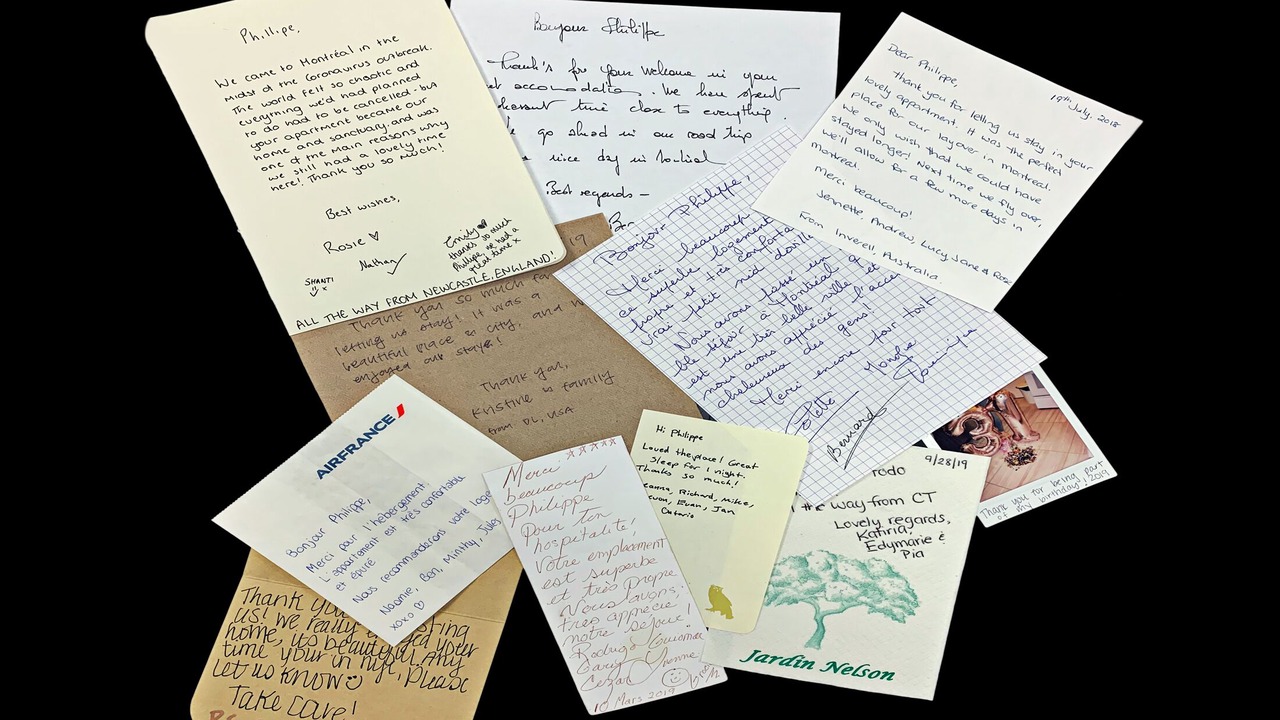 Phillipe,
We came to Montréal in the
midst of the coronavirus outbreak.
The world fell so chaotic and
everything we'd had planned
to do had to be cancelled - but
your apartment became our
home and sanctuary and was
one of the main reasons why
we still had a lovely time
here! Thank you so much!
Best wishes,
Rosie ♡
Nathan
SHANTI
Emily
thanks so much
Philippe we had a
great time x
ALL THE WAY FROM NEWCASTLE, ENGLAND!
Bonjour Philippe
Thank's for your welcome in your
accomodation. We have spent
time close to everything.
go ahead in our road trip
nice day in
Best regards -
19th July, 2018
Dear Philippe,
Thank you for letting us stay in your
lovely appartment. It was the perfect
place for our layover in Montreal.
We only wish that we could have
stayed longer! Next time we fly over,
we'll allow for a few more days in
Montreal.
Merci beaucoup!
Jennette, Andrew, Lucy, Jane &
From Inverell, Australia.
Bonjour Philippe,
Merci beaucoup
ce superbe logement
propre et très
J'ai petit nid
Nous avons passé un
ble séjour à Montréal
est une très belle ville et
nous avons apprécié l'
chaleureux des gens!
Merci encore pour tout
Colette
Bernard
Dominique
19
Thank you so much for
letting us stay! It was a
beautiful place & city, and
enjoyed our stay!
Thank you,
Kristine & family
from DL, USA
AIRFRANCE
Bonjour Philippe,
Merci pour l'hébergement,
L'appartement est très confortable
et épuré
Nous recommanderons votre
Noémie, Ben, Minthy, Jules
xoxo ♡
Thank You
us! we really your
home, its beautiful. Any
time your in nyc, please
let us know
Take Care!
☆☆☆☆☆
Merci
beaucoup
Philippe
Pour ton
hospitalité!
Votre emplacement
est superbe
et très propre
Nous avons
très apprécié
notre séjour!
Rodrigo
Gary Yvonne
Cesar
10 Mars 2019
Hi Philippe
Loved the place! Great
sleep for 1 night.
Thanks so much!
Richard, Mike,
Evan, Jan
Ontario
9/28/19
the way from CT
Lovely regards,
Kathria,
Edymarie &
Pia
Jardin Nelson
Thank you for being part
of my birthday! 2019